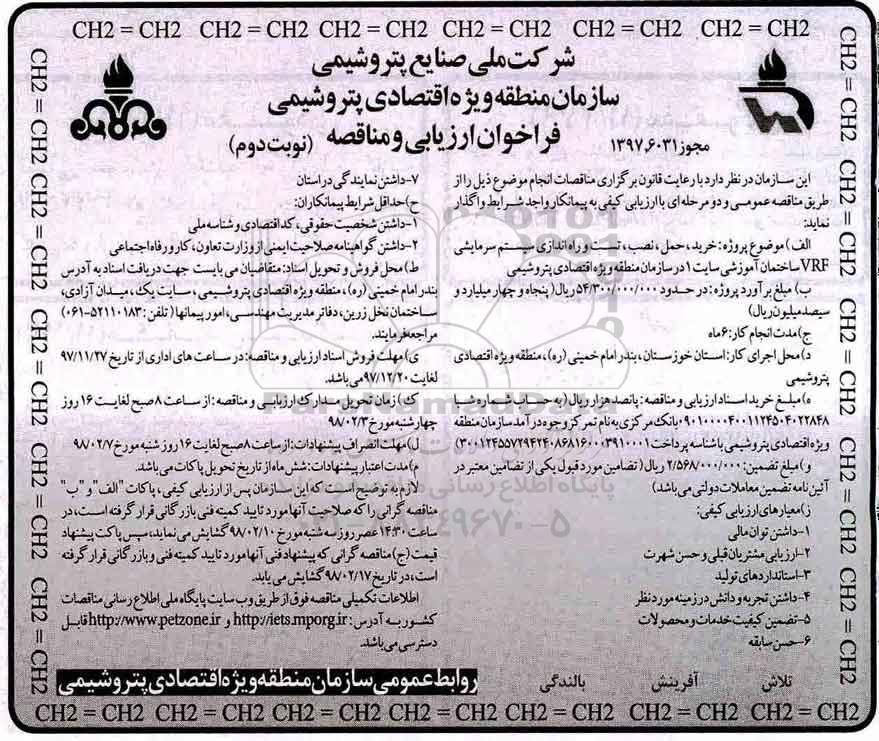 CH2 = CH2 CH2 = CH2 CH2 = CH2 CH2 = CH2 CH2 = CH2 CH2 = CH2
شرکت ملی صنایع پتروشیمی
سازمان منطقه ویژه اقتصادی پتروشیمی
فراخوان ارزیابی و مناقصه (نوبت دوم)
مجوز ۱۳۹۷,۶۰۳۱
این سازمان در نظر دارد با رعایت قانون برگزاری مناقصات انجام موضوع ذیل را از
طریق مناقصه عمومی و دو مرحله ای با ارزیابی کیفی به پیمانکار واجد شرایط واگذار
نماید:
الف) موضوع پروژه: خرید، حمل، نصب، تست و راه اندازی سیستم سرمایشی
VRF ساختمان آموزشی سایت ۱ در سازمان منطقه ویژه اقتصادی پتروشیمی
ب) مبلغ برآورد پروژه: در حدود ۵۴/۳۰۰/۰۰۰/۰۰۰ ریال( پنجاه و چهار میلیارد و
سیصد میلیون ریال)
ج) مدت انجام کار: ۶ ماه
د) محل اجرای کار: استان خوزستان، بندر امام خمینی (ره)، منطقه ویژه اقتصادی
پتروشیمی
ه) مبلغ خرید اسناد ارزیابی و مناقصه: پانصد هزار ریال (به حساب شماره شبا
۰۹۰۱۰۰۰۰۴۰۰۱۱۲۴۵۰۴۰۲۲۸۴۸ بانک مرکزی به نام تمرکز وجوه درآمد سازمان منطقه
ویژه اقتصادی پتروشیمی با شناسه پرداخت ۳۰۰۱۲۴۵۵۷۲۹۴۲۴۰۸۶۸۱۶۰۰۰۳۹۱۰۰۰۱)
و) مبلغ تضمین: ۲/۵۶۸/۰۰۰/۰۰۰ ریال( تضامین مورد قبول یکی از تضامین معتبر در
آئین نامه تضمین معاملات دولتی می باشد)
ز) معیارهای ارزیابی کیفی:
۱-داشتن توان مالی
۲-ارزیابی مشتریان قبلی و حسن شهرت
۳-استانداردهای تولید
۴-داشتن تجربه و دانش در زمینه مورد نظر
۵-تضمین کیفیت خدمات و محصولات
۶-حسن سابقه
تلاش آفرینش بالندگی
۷-داشتن نمایندگی در استان
ح) حداقل شرایط پیمانکاران:
۱-داشتن شخصیت حقوقی، کد اقتصادی و شناسه ملی
۲-داشتن گواهینامه صلاحیت ایمنی از وزارت تعاون، کار و رفاه اجتماعی
ط) محل فروش و تحویل اسناد: متقاضیان می بایست جهت دریافت اسناد به آدرس
بندر امام خمینی (ره)، منطقه ویژه اقتصادی پتروشیمی، سایت یک، میدان آزادی،
ساختمان نخل زرین، دفاتر مدیریت مهندسی، امور پیمانها ( تلفن: ۵۲۱۱۰۱۸۳-۰۶۱)
مراجعه فرمایند.
ی) مهلت فروش اسناد ارزیابی و مناقصه: در ساعت های اداری از تاریخ ۹۷/۱۱/۲۷
لغایت ۹۷/۱۲/۲۰ می باشد.
ک) زمان تحویل مدارک ارزیابی و مناقصه: از ساعت ۸ صبح لغایت ۱۶ روز
چهارشنبه مورخ ۹۸/۰۲/۳
ل) مهلت انصراف پیشنهادات: از ساعت ۸ صبح لغایت ۱۶ روز شنبه مورخ ۹۸/۰۲/۷
م) مدت اعتبار پیشنهادات: شش ماه از تاریخ تحویل پاکات می باشد.
لازم به توضیح است که این سازمان پس از ارزیابی کیفی، پاکات "الف" و "ب"
مناقصه گرانی را که صلاحیت آنها مورد تایید کمیته فنی بازرگانی قرار گرفته است، در
ساعت ۱۴:۳۰ عصر روز سه شنبه مورخ ۹۸/۰۲/۱۰ گشایش می نماید، سپس پاکت پیشنهاد
قیمت (ج) مناقصه گرانی که پیشنهاد فنی آنها مورد تایید کمیته فنی و بازرگانی قرار گرفته
است، در تاریخ ۹۸/۰۲/۱۷ گشایش می یابد.
اطلاعات تکمیلی مناقصه فوق از طریق وب سایت پایگاه ملی اطلاع رسانی مناقصات
کشور به آدرس: http://iets.mporg.ir و http://www.petzone.ir قابل
دسترسی می باشد.
روابط عمومی سازمان منطقه ویژه اقتصادی پتروشیمی
CH2 = CH2 CH2 = CH2 CH2 = CH2 CH2 = CH2 CH2 = CH2 CH2 = CH2 CH2 = CH2
ParsNamadData
پایگاه اطلاع رسانی